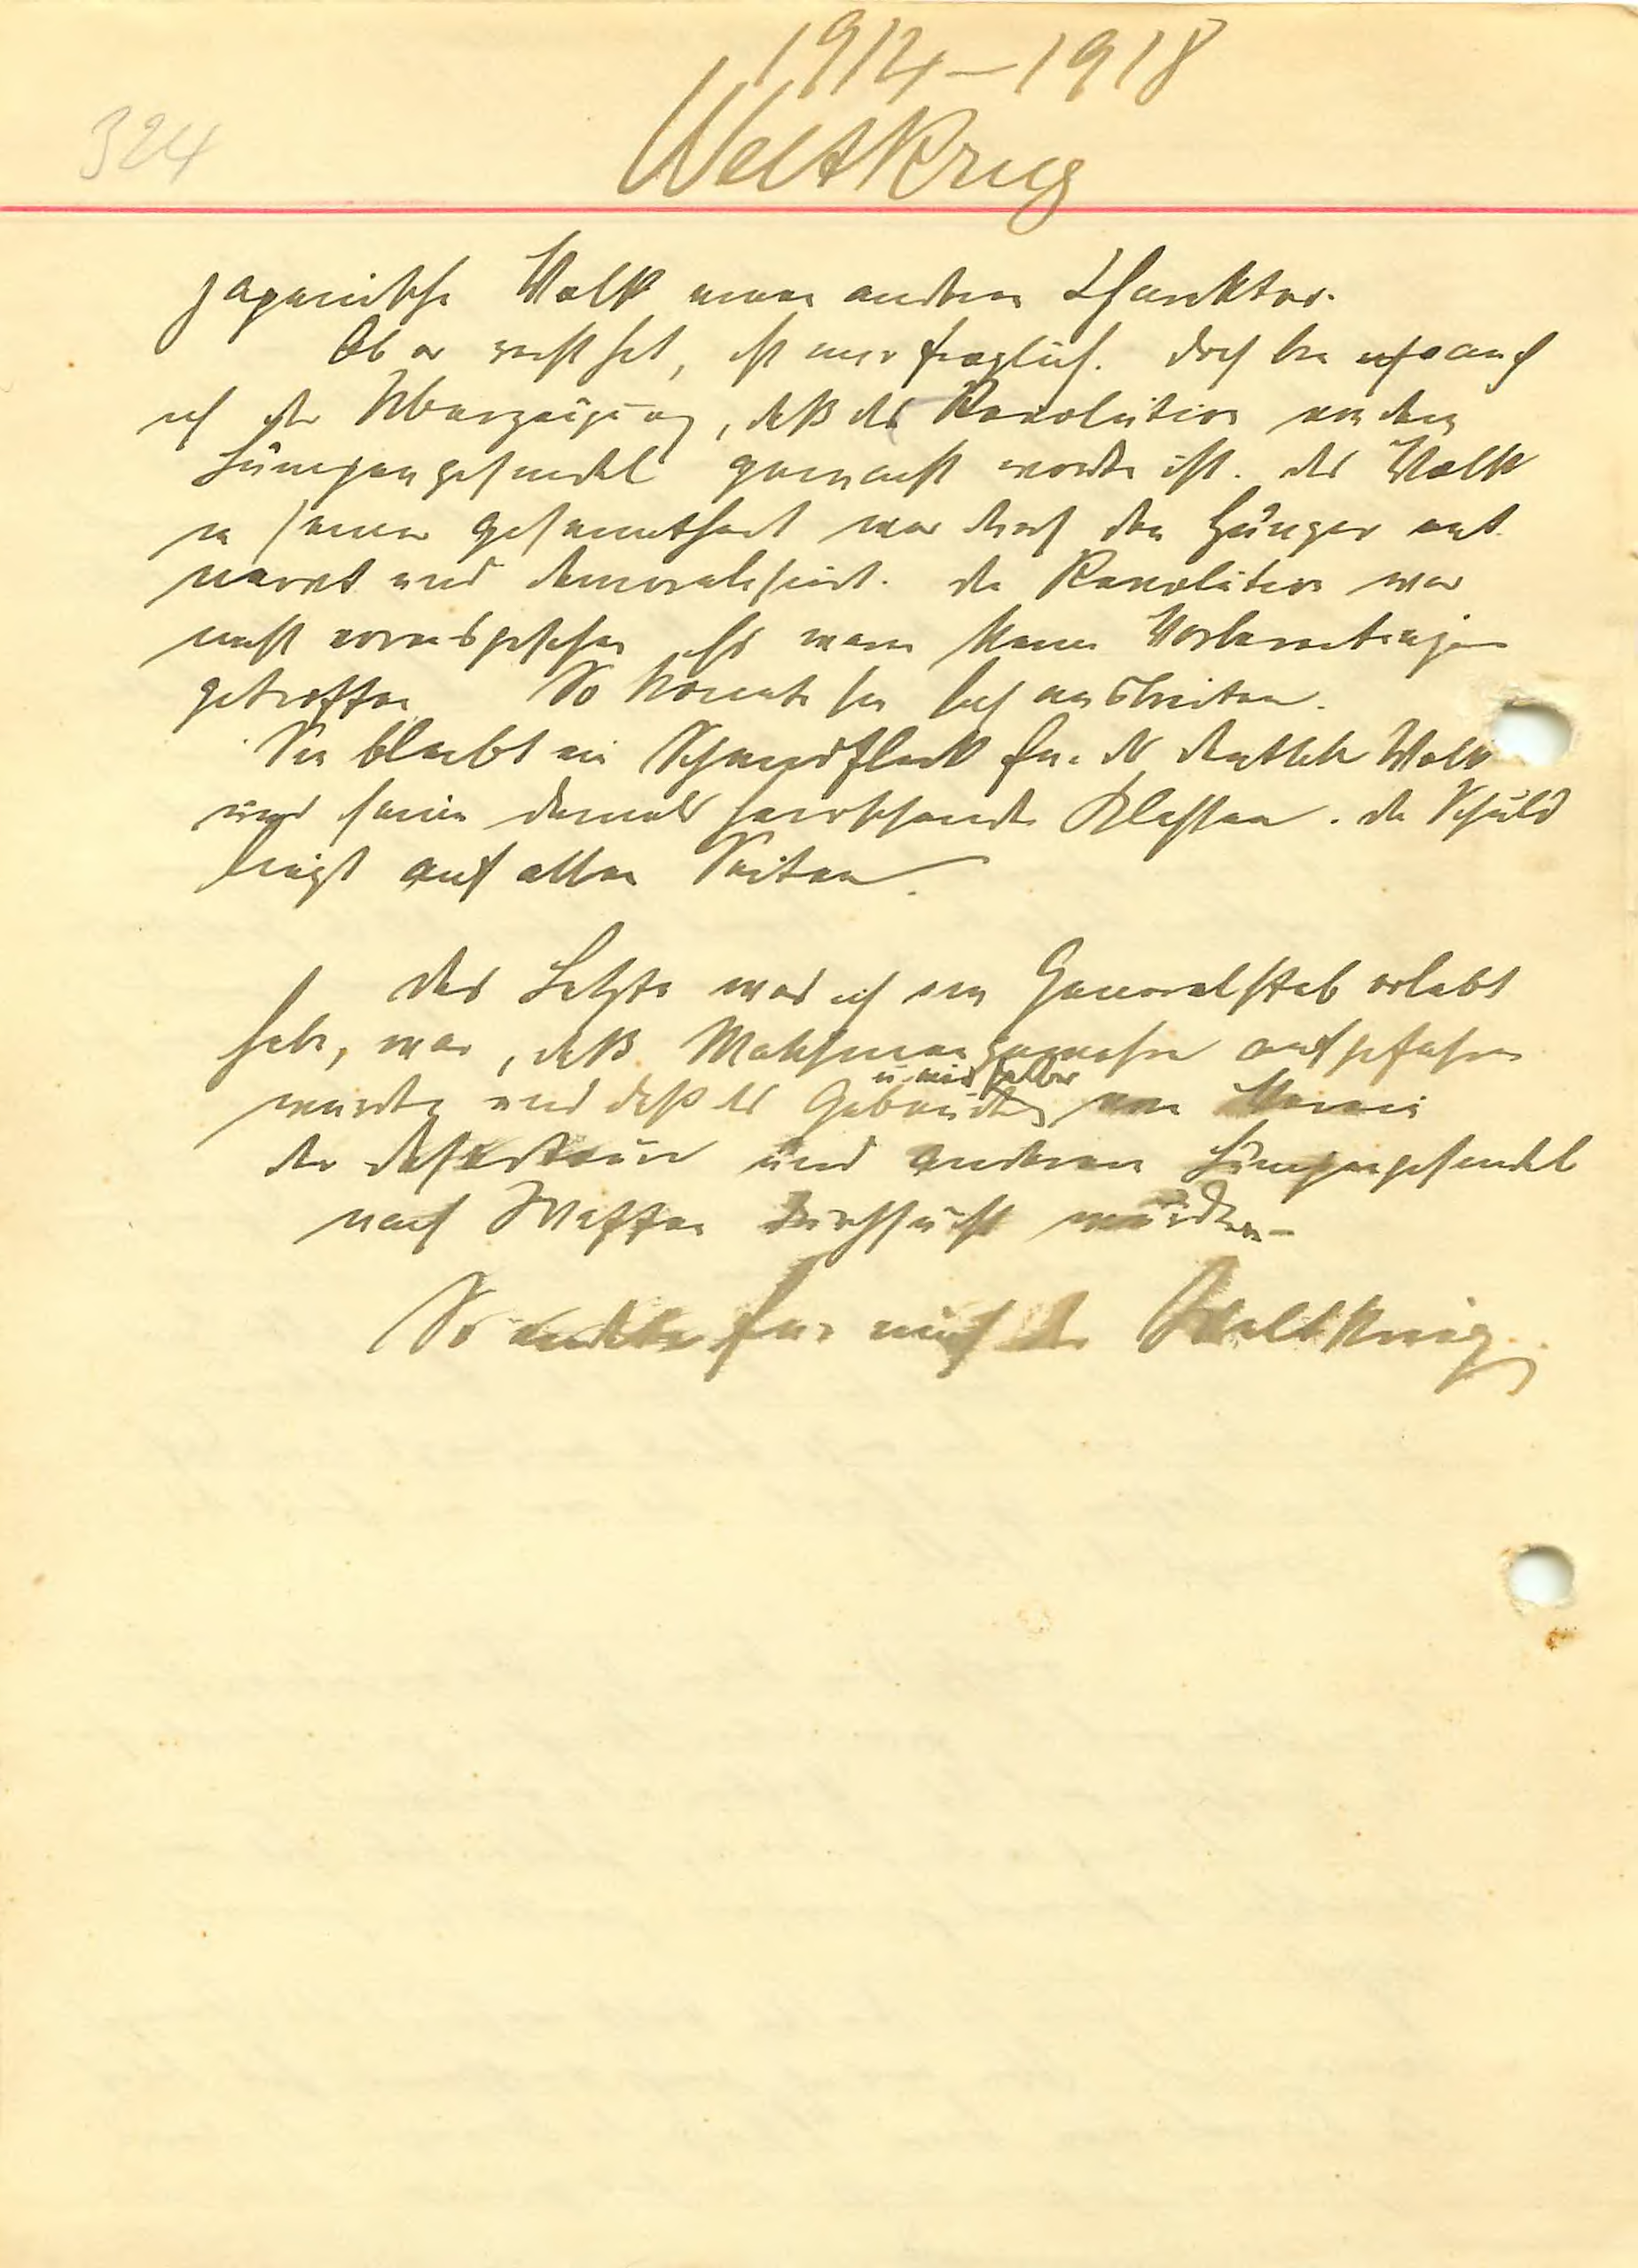 1914–1918
324
Weltkrieg
japanische Volk einen anderen Charakter.
Ob er recht hat, ist mir fraglich. Doch bin ich auch
der Überzeugung, daß die Revolution von dem
Lumpengesindel gemacht worden ist. Das Volk
in seiner Gesamtheit war durch den Hunger ent
nervt und demoralisiert. Die Revolution war
nicht vorausgesehen. Es waren keine Vorbereitungen
getroffen. So konnte sie sich ausbreiten.
Sie bleibt ein Schandfleck für das deutsche Volk
und seine damals herrschenden Klassen. Die Schuld
liegt auf allen Seiten.
Das Letzte was ich im Generalstab erlebt
habe, war, daß Maschinengewehre aufgefahren
u. wir selber
wurden und daß das Gebäude von
der Deserteure und anderem Lumpengesindel
nach Waffen durchsucht wurden –
So endete für mich der Weltkrieg.